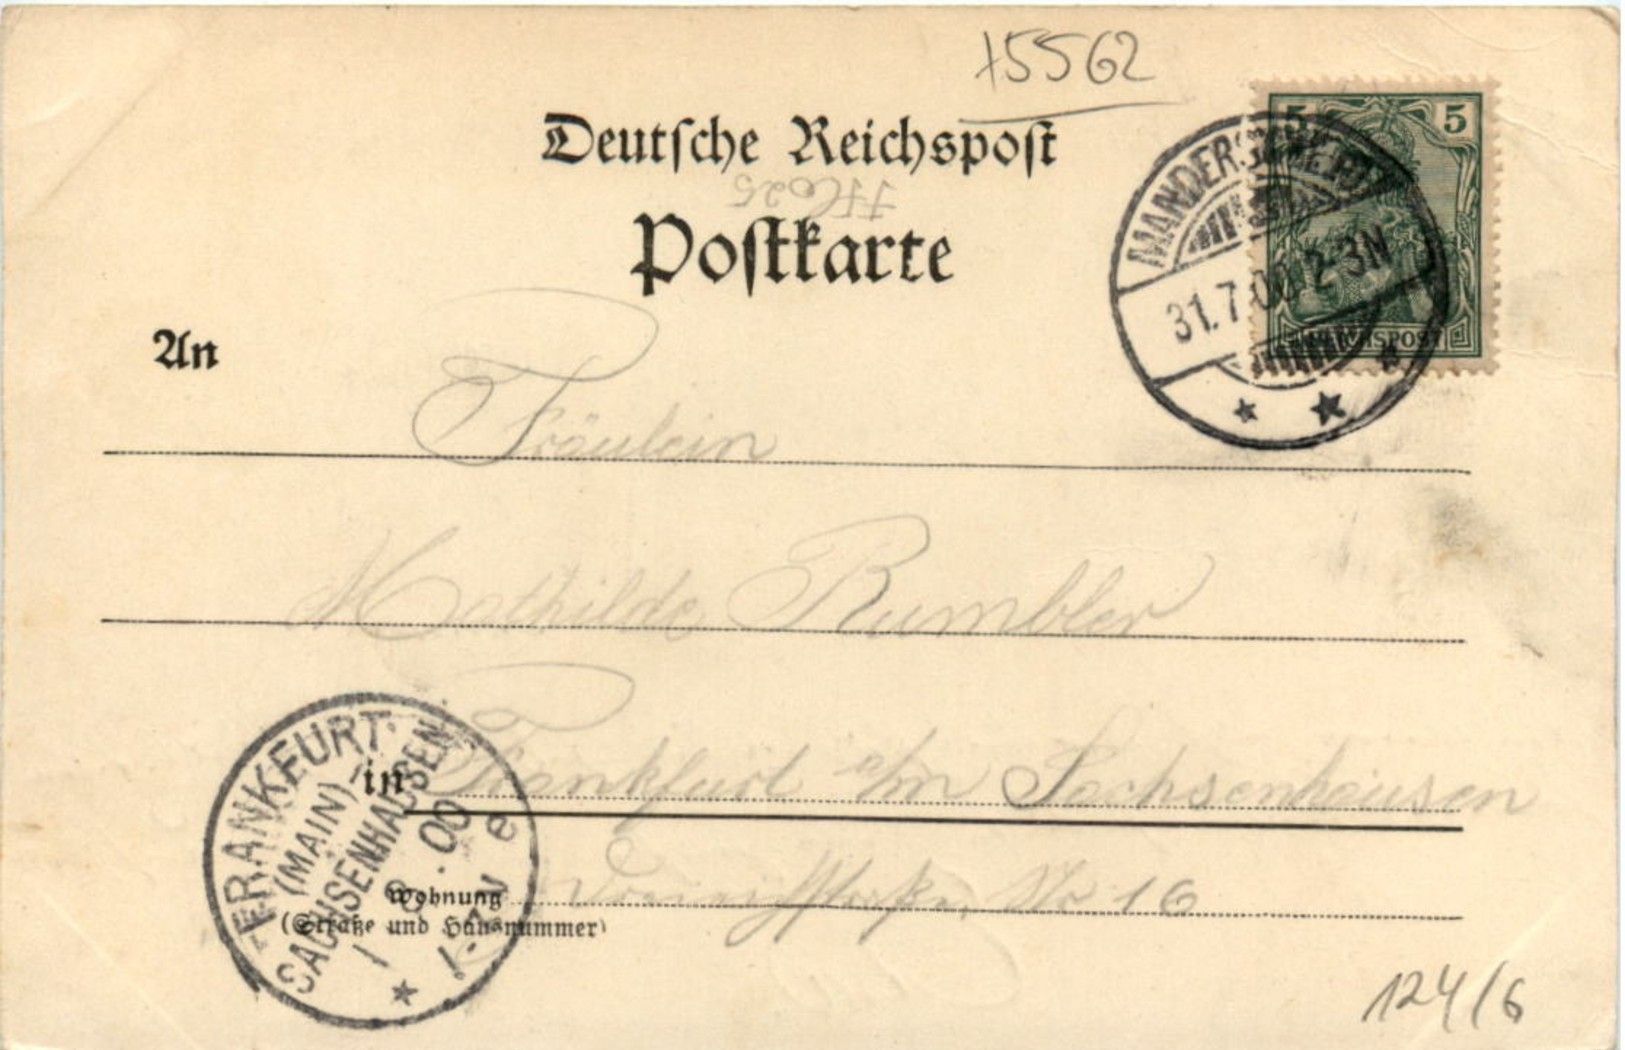 15562
Deutsche Reichspost
Postkarte
5 5
REICHSPOST
MANDERSCHEID
31.7.00 2-3N
An
Fräulein
Mathilde Rumbler
in Frankfurt a/m Sachsenhausen
Wohnung Nr 16
(Straße und Hausnummer)
FRANKFURT
(MAIN)
SACHSENHAUSEN
1 8.00
1-2N
e
124/6